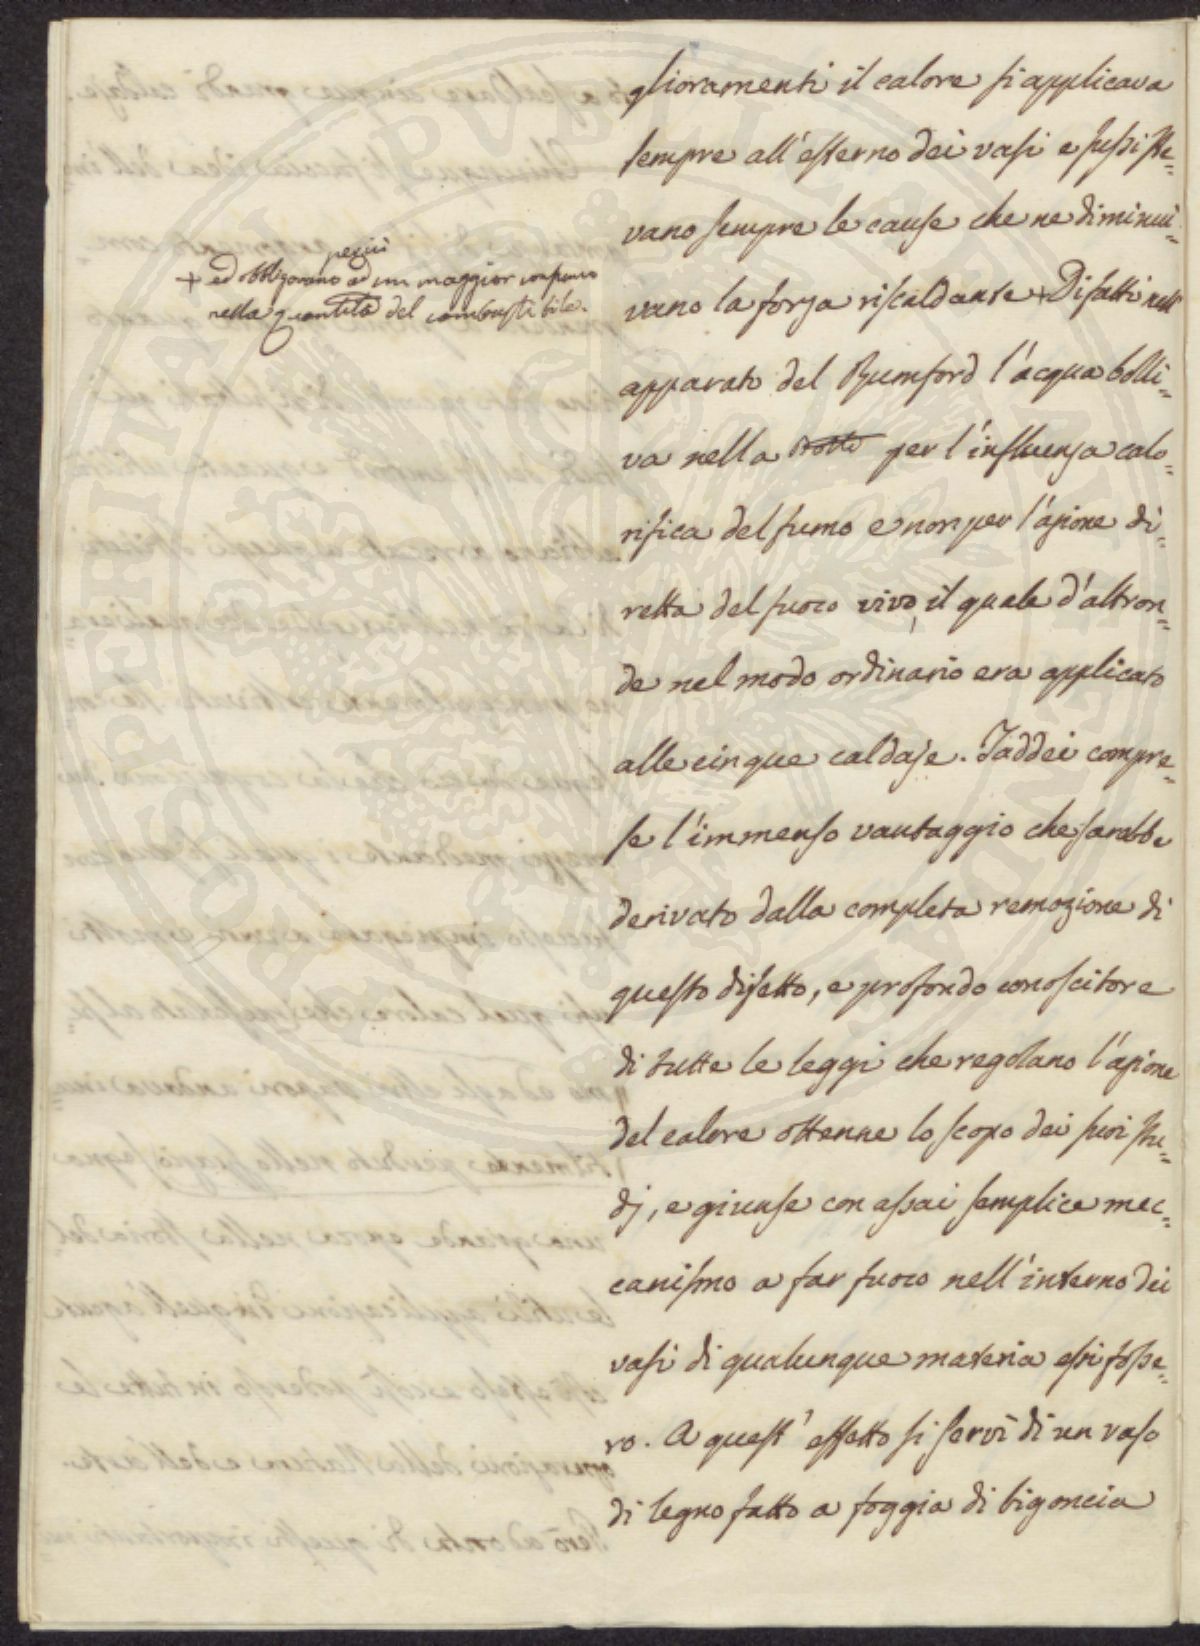 glioramenti il calore si applicava
sempre all'esterno dei vasi e sussiste=
vano sempre le cause che ne diminui=
vano la forza riscaldante + Difatti nell'
+ ed obbligavano perciò ad un maggior consumo
nella quantità del combustibile.
apparato del Rumford l'acqua bolli=
va nella botte per l'influenza calo=
rifica del fumo e non per l'azione di=
retta del fuoco vivo, il quale d'altron=
de nel modo ordinario era applicato
alle cinque caldaje. Taddei compre=
se l'immenso vantaggio che sarebbe
derivato dalla completa remozione di
questo difetto, e profondo conoscitore
di tutte le leggi che regolano l'azione
del calore ottenne lo scopo dei suoi stu=
dj, e giunse con assai semplice mec=
canismo a far fuoco nell'interno dei
vasi di qualunque materia essi fosse=
ro. A quest'effetto si servì di un vaso
di legno fatto a foggia di bigoncia
PROSPERITATI PUBLICAE AUGENDAE